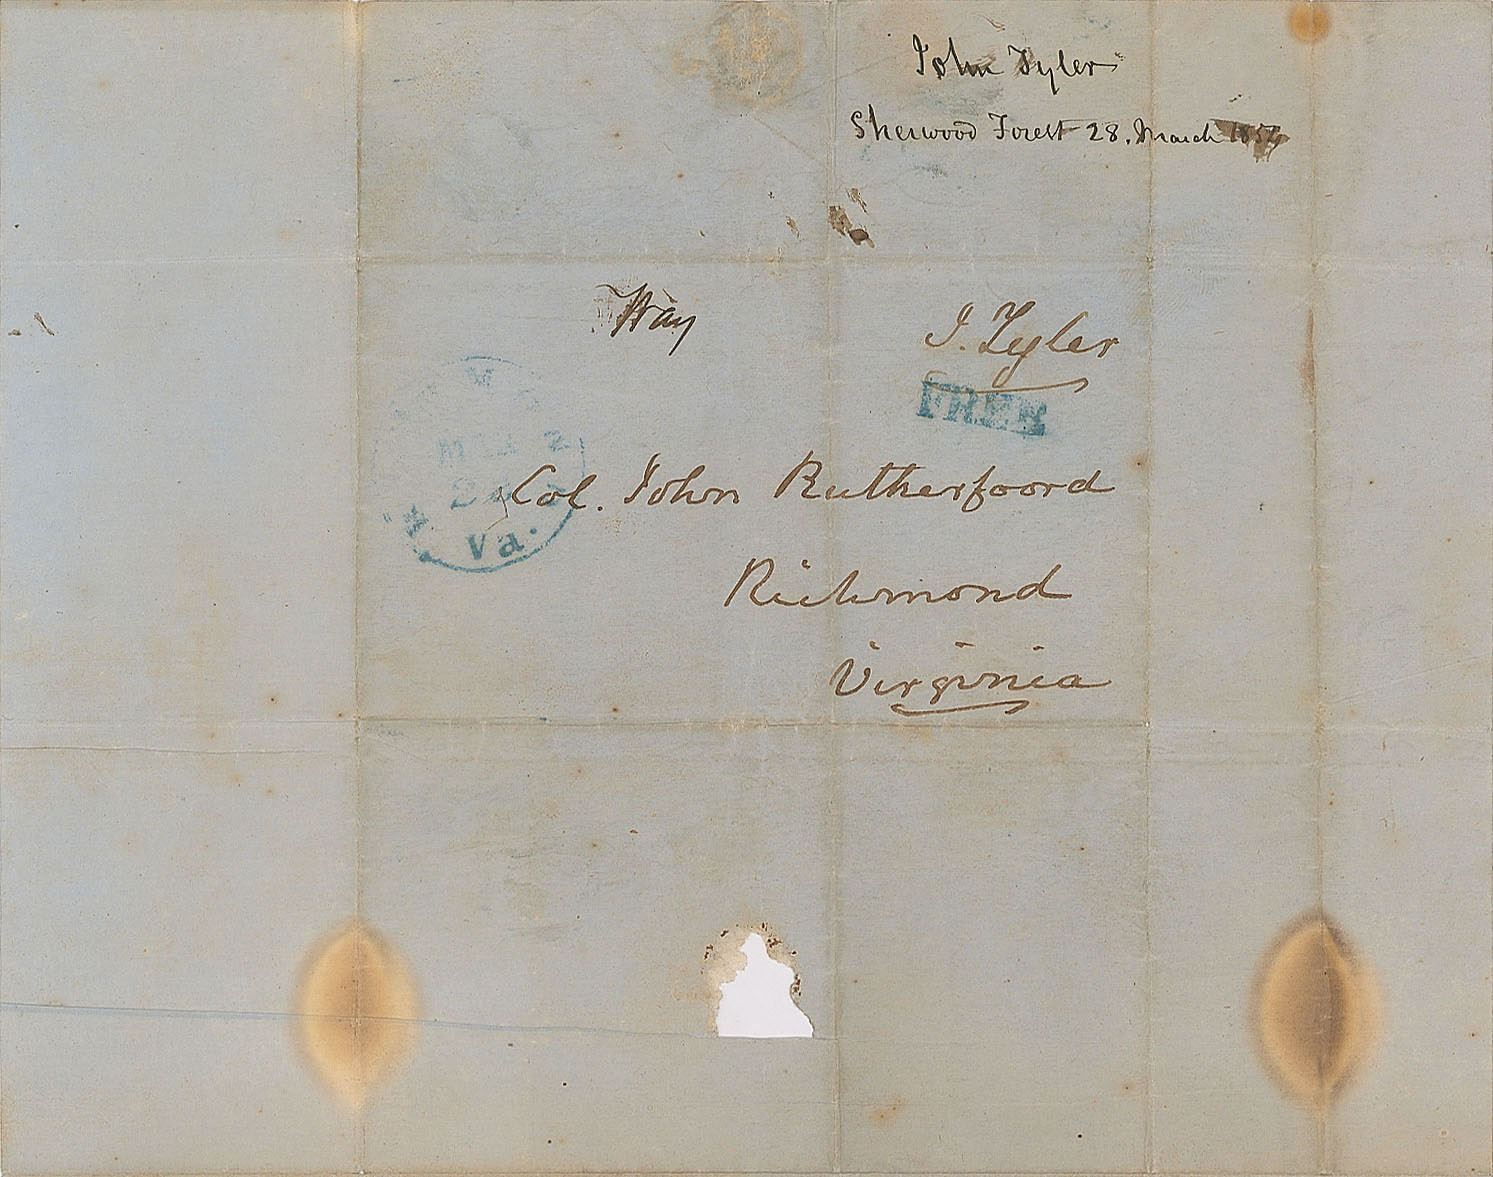 John Tyler
Sherwood Forest 28. March
Way
J. Tyler
FREE
Col. John Rutherfoord
Va.
Richmond
Virginia